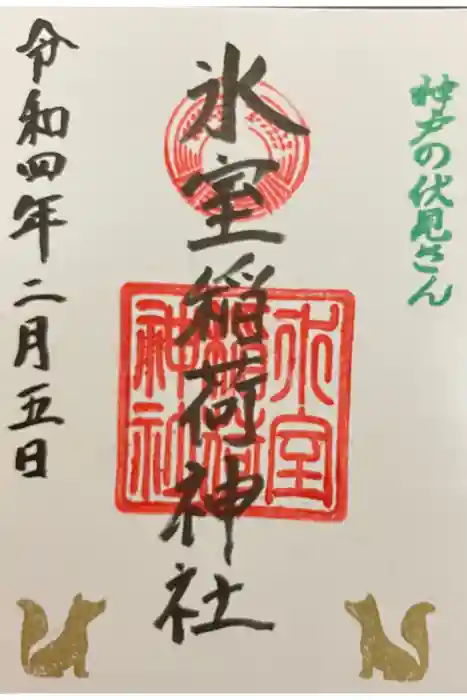 神戸の伏見さん
氷室稲荷神社
氷室稲荷神社
令和四年二月五日